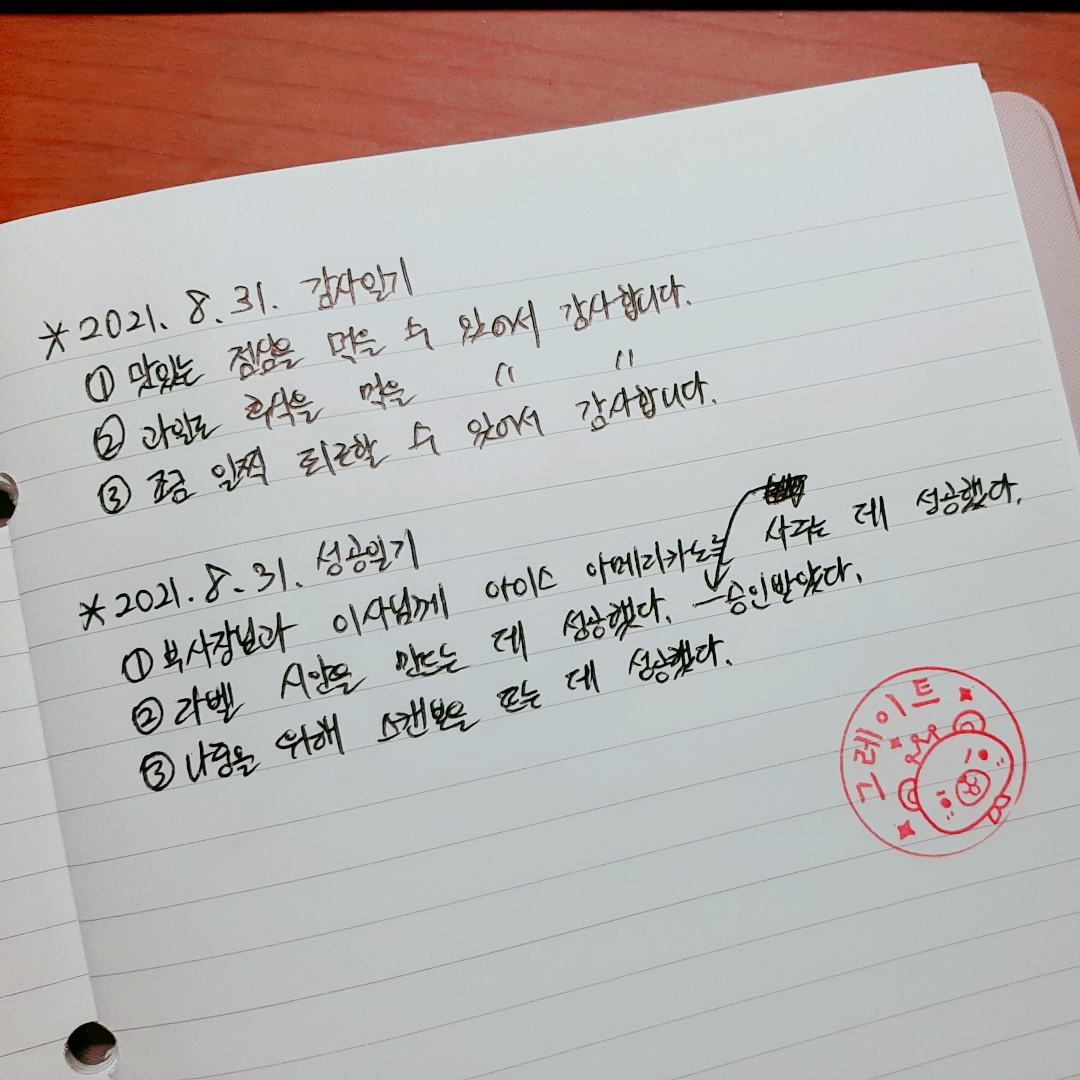 * 2021. 8. 31. 감사일기
① 맛있는 점심을 먹을 수 있어서 감사합니다.
② 과일로 후식을 먹을 〃 〃
③ 조금 일찍 퇴근할 수 있어서 감사합니다.
* 2021. 8. 31. 성공일기
① 부사장님과 이사님께 아이스 아메리카노를 사다는 데 성공했다.
② 라벨 시안을 만드는 데 성공했다. 승인받았다.
③ 나눔을 위해 스캔본을 뜨는 데 성공했다.
그레이트